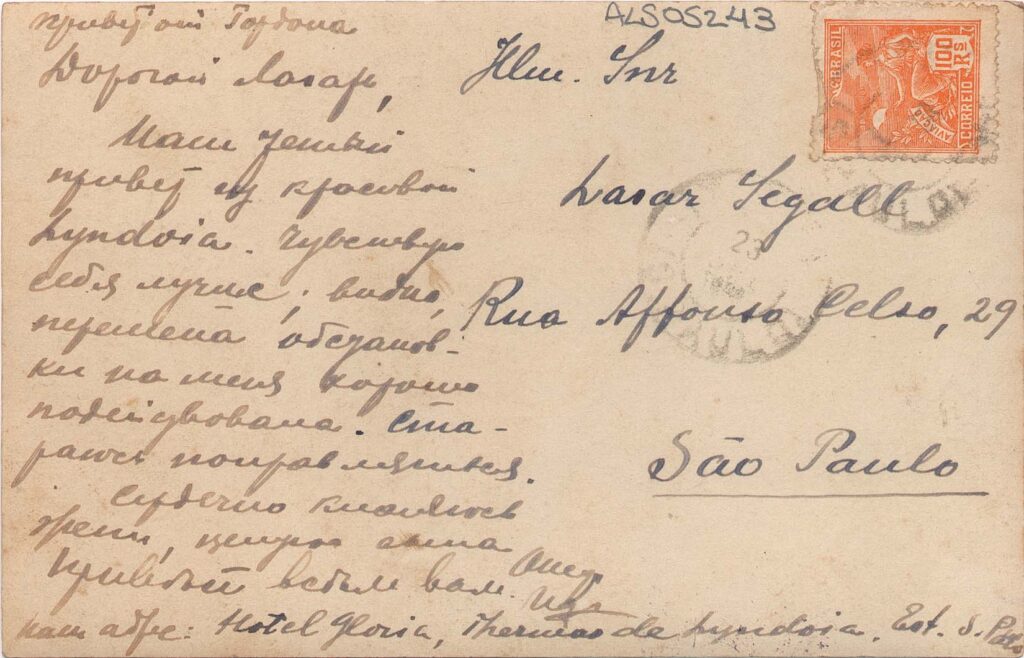 привет от Гордона
Дорогой Лазарь,
Наш
привет из красивой
Lyndoia. Чувствую
себя лучше, видно,
перемена обстанов-
ки на меня хорошо
подействовала. Ста-
раюсь поправляться.
Сердечно кланяюсь
Жени, целую
Привет всем вам.
наш адрес: Hotel Gloria, Thermas de Lyndoia, Est. S. Paulo
ALS05243
Illm. Snr
Lasar Segall
Rua Affonso Celso, 29
São Paulo
BRASIL
CORREIO
100 Rs
AVIAÇÃO
23